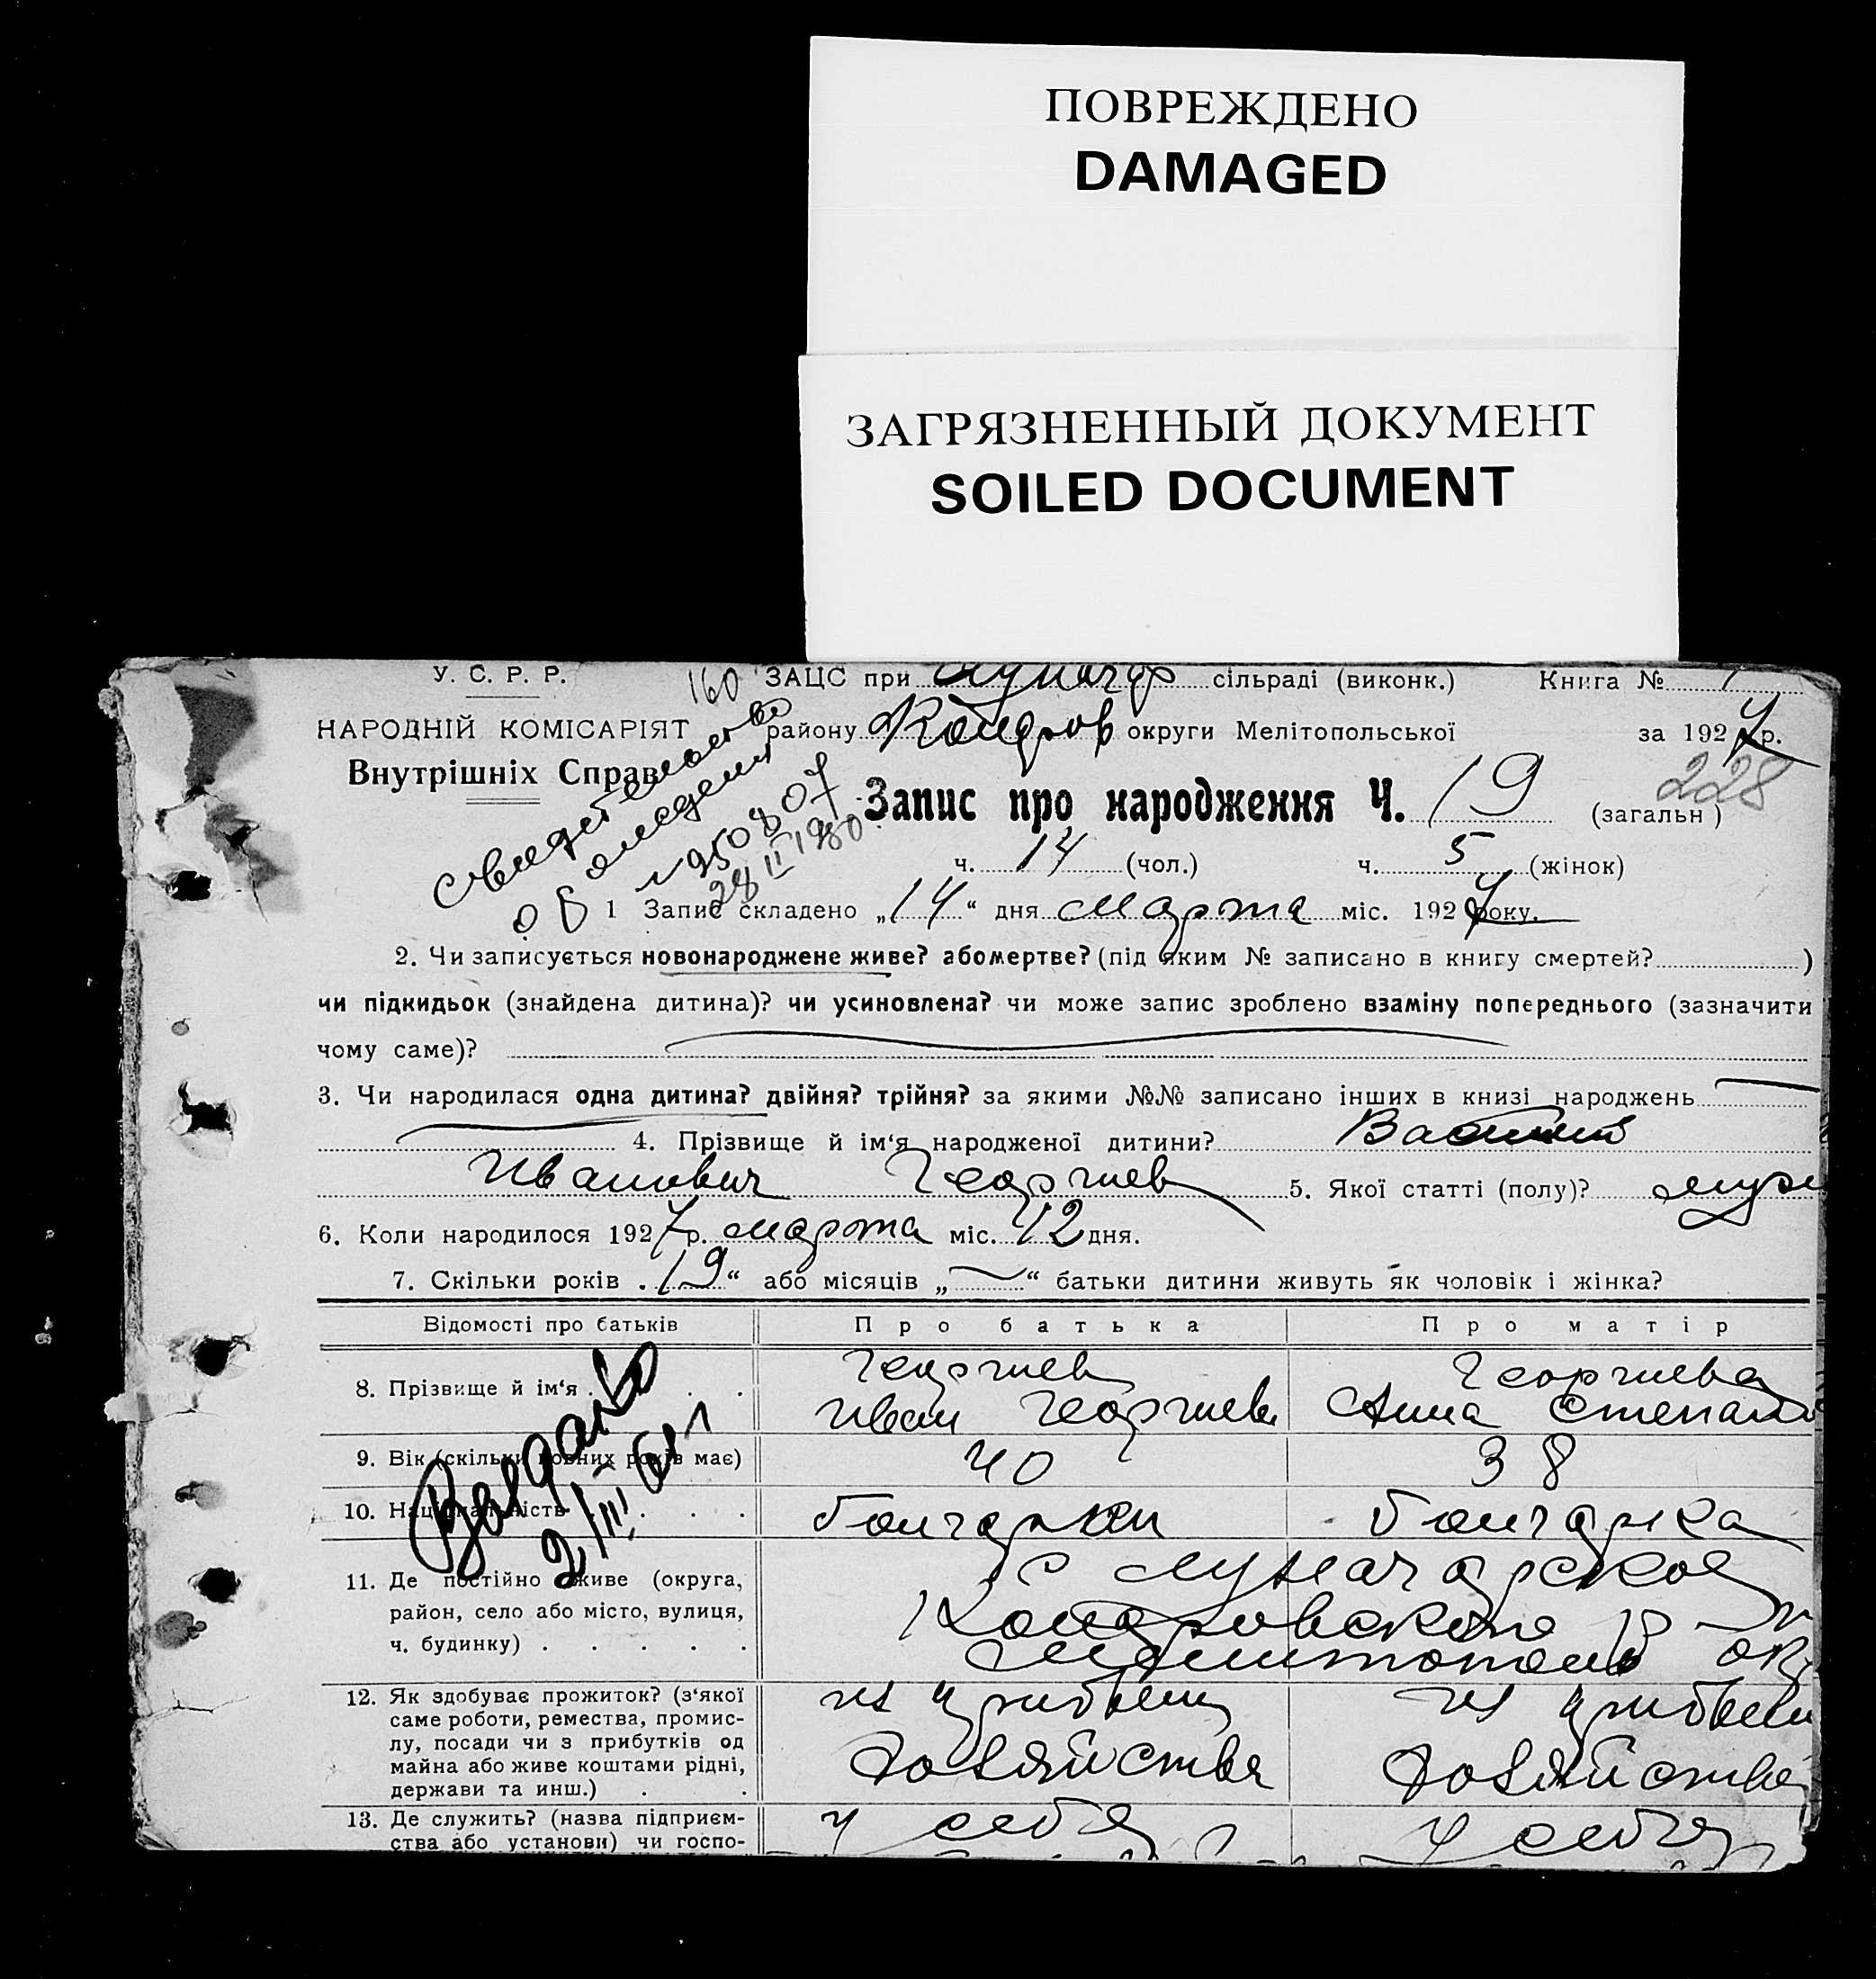 ПОВРЕЖДЕНО
DAMAGED
ЗАГРЯЗНЕННЫЙ ДОКУМЕНТ
SOILED DOCUMENT
У. С. Р. Р.
160
ЗАЦС при Луначар сільраді (виконк.) Книга №
НАРОДНІЙ КОМІСАРІЯТ району округи Мелітопольської за 1927 р.
Внутрішніх Справ
свидетельство
о
№ 950807
28 II 1980
Запис про народження Ч. 19 (загальн)
228
ч. 14 (чол.) ч. 5 (жінок)
1 Запис складено „14“ дня марта міс. 1927 року.
2. Чи записується новонароджене живе? або мертве? (під яким № записано в книгу смертей? )
чи підкидьок (знайдена дитина)? чи усиновлена? чи може запис зроблено взаміну попереднього (зазначити
чому саме)?
3. Чи народилася одна дитина? двійня? трійня? за якими №№ записано інших в книзі народжень
4. Прізвище й ім‘я народженої дитини?
Иванович Георгиев 5. Якої статті (полу)? муж
6. Коли народилося 1927 р. марта міс. 12 дня.
7. Скільки років „19“ або місяців „ “ батьки дитини живуть як чоловік і жінка?
Відомості про батьків Про батька Про матір
8. Прізвище й ім‘я Георгиев Георгиева
Иван Георгиев Анна Степан
9. Вік (скільки повних років має) 40 38
10. Національність болгарка
11. Де постійно живе (округа,
район, село або місто, вулиця,
ч. будинку)
с Луначарское
Мелитополь окр
12. Як здобуває прожиток? (з‘якої
саме роботи, ремества, промис-
лу, посади чи з прибутків од
майна або живе коштами рідні,
держави та инш.)
хозяйства хозяйства
13. Де служить? (назва підприєм-
ства або установи) чи госпо-
у себя у себя